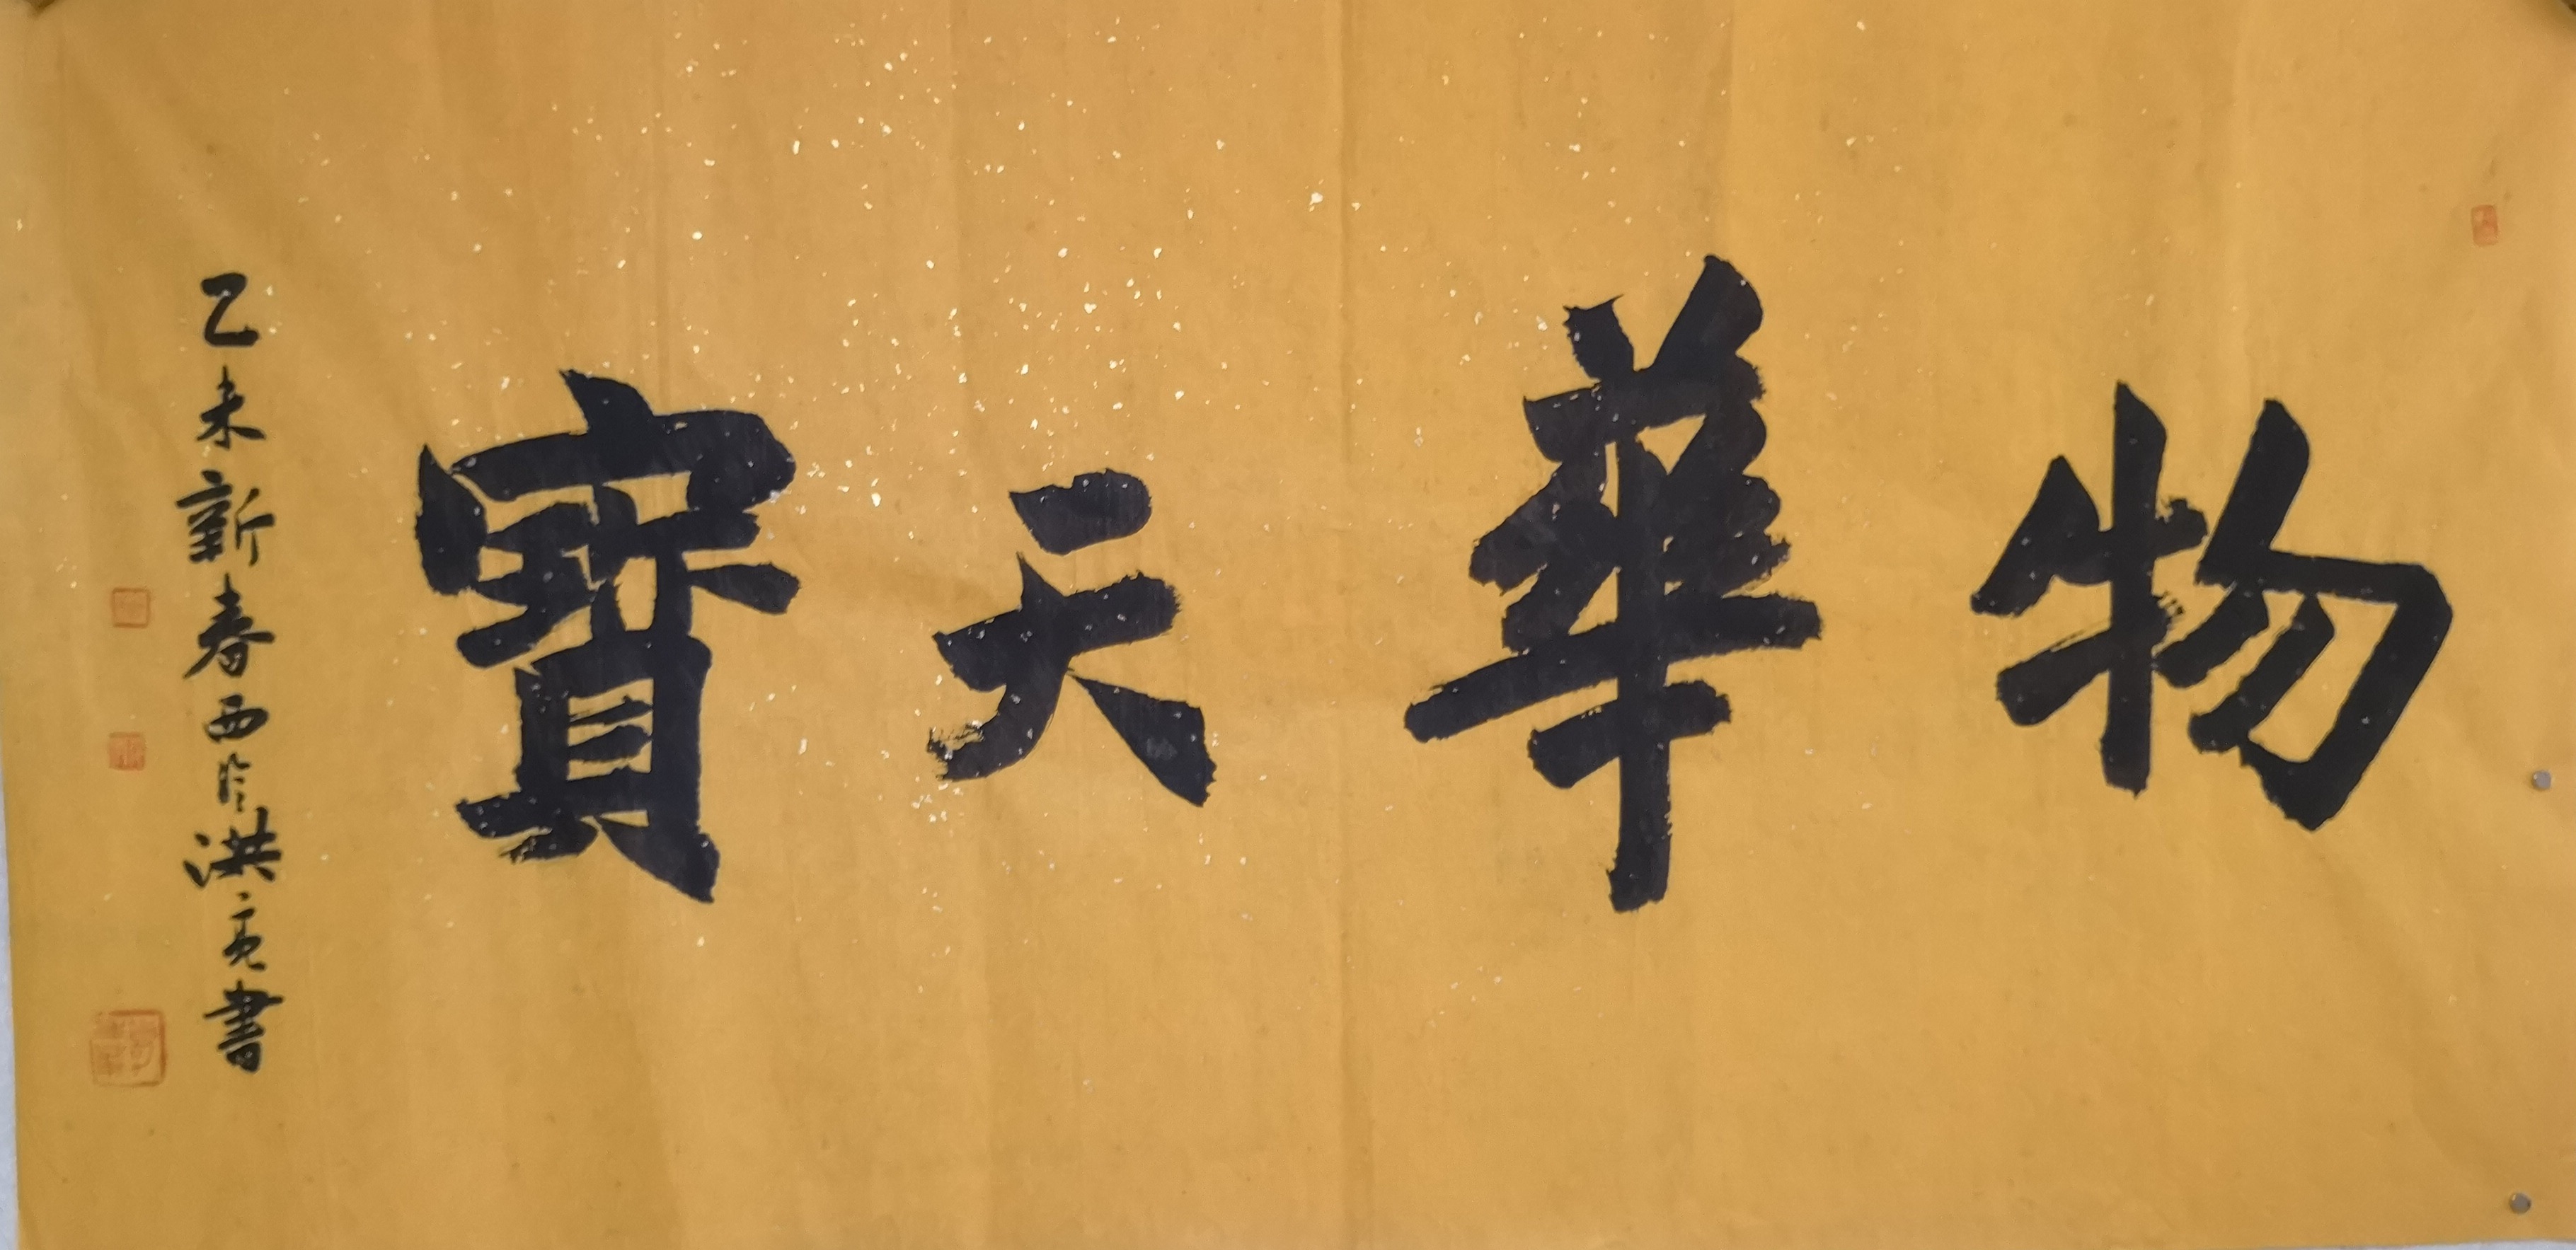 物華天寶
乙未新春西泠洪亮書